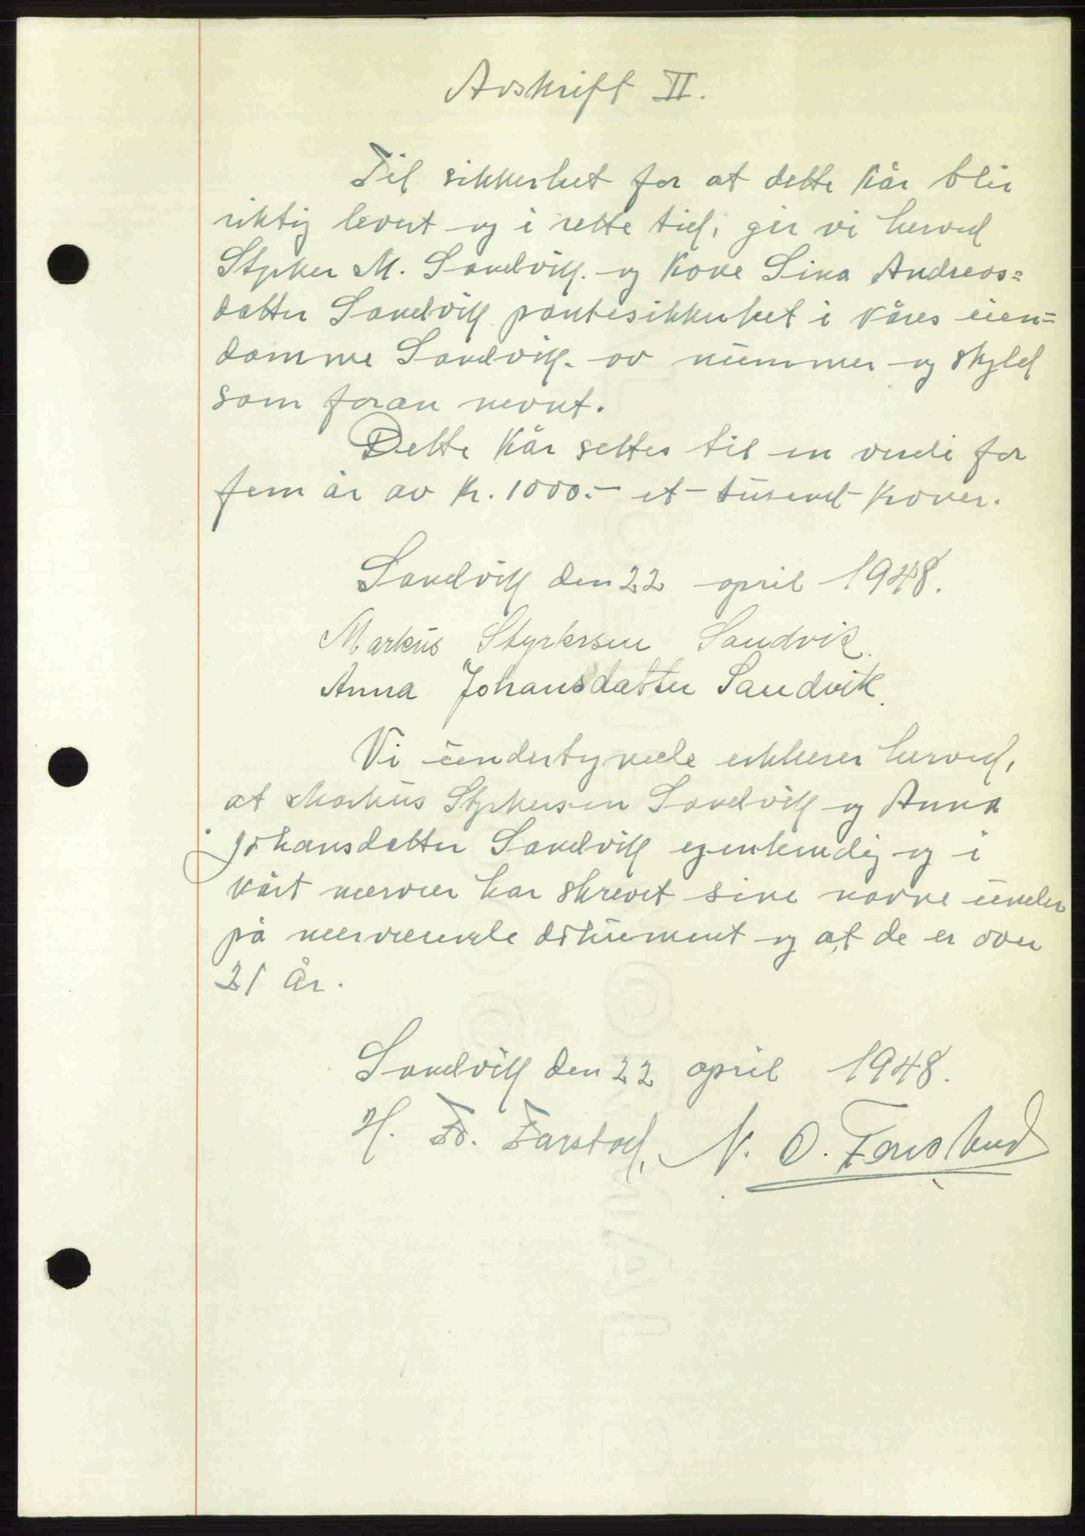 Avskrift II.
Til sikkerhet for at dette kår blir
riktig levert og i rette tid, gir vi herved
Styrker M. Sandvik og kone Sina Andreas=
datter Sandvik pantesikkerhet i våres eien=
domme Sandvik av nummer og skyld
som foran nevnt.
Dette kår settes til en verdi for
fem år av kr. 1000.- et tusend kroner.
Sandvik den 22 april 1948.
Markus Styrkersen Sandvik.
Anna Johansdatter Sandvik.
Vi undertegnede erklærer herved,
at Markus Styrkersen Sandvik og Anna
Johansdatter Sandvik egenhendig og i
vårt nærvær har skrevet sine navne under
på nærværende dokument og at de er over
21 år.
Sandvik den 22 april 1948.
H. Fr. Farstad, N. O.